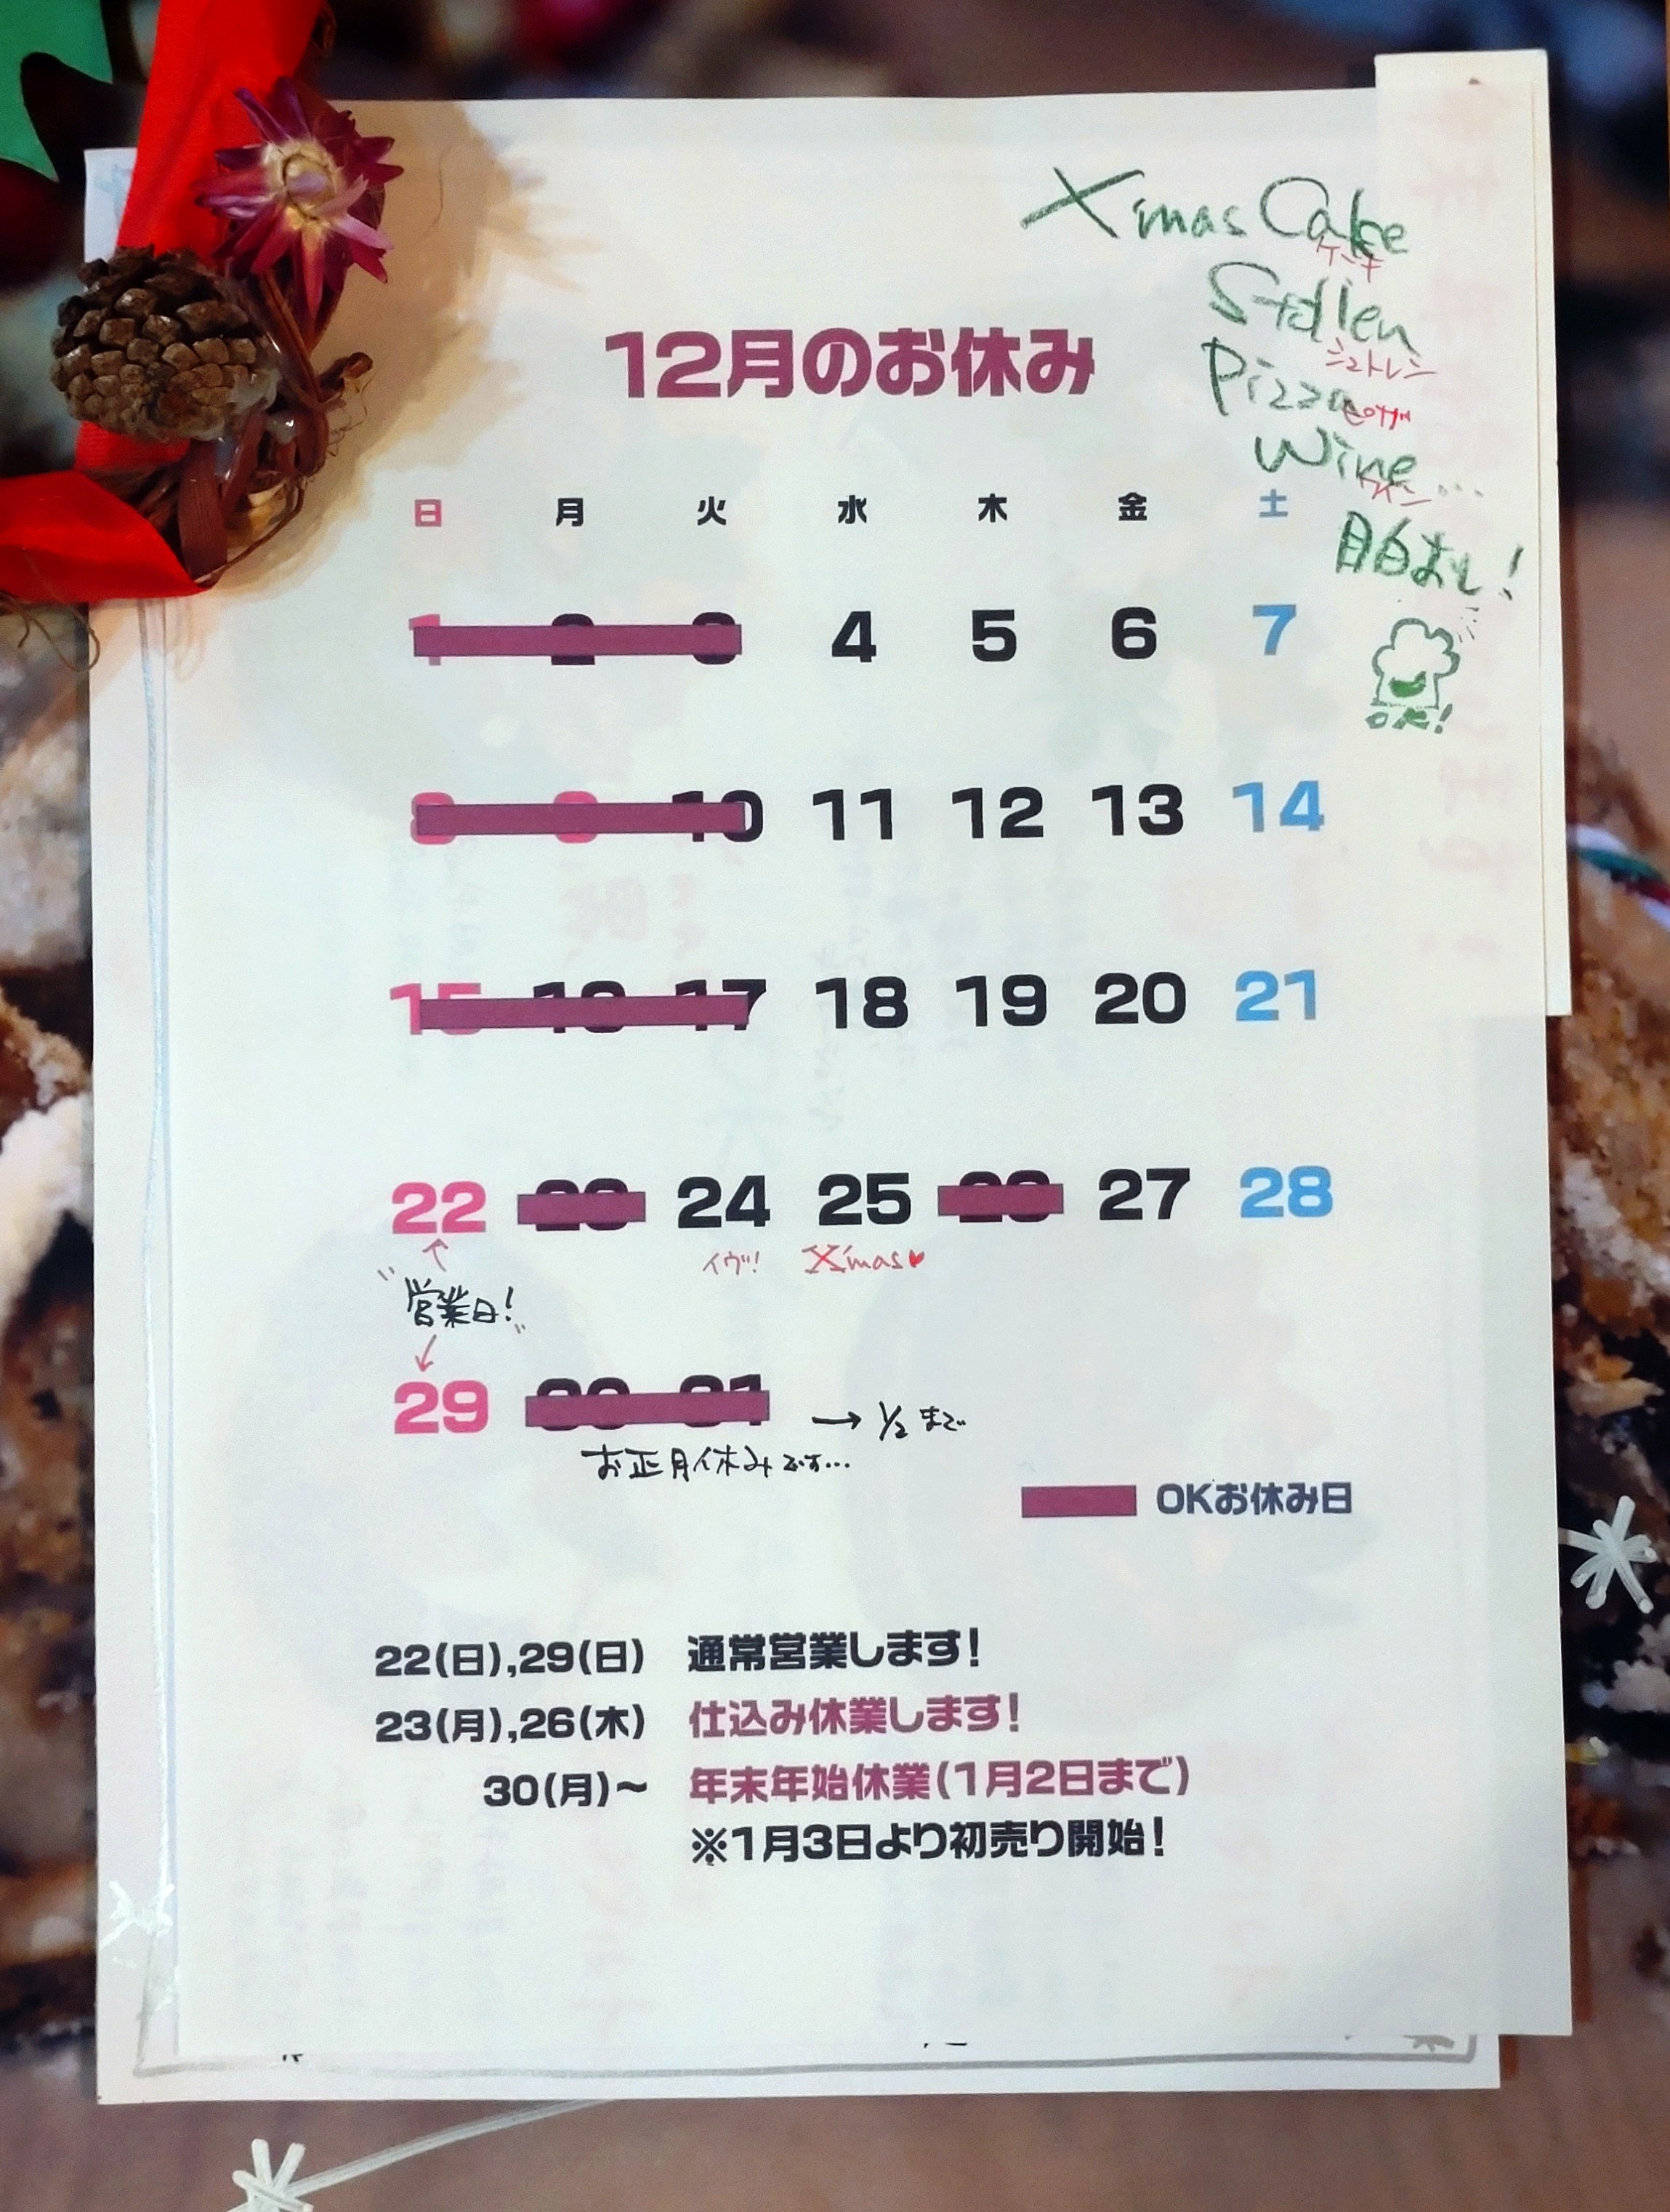 Xmas Cake
ケーキ
Stollen
シュトレン
Pizza
ピッツァ
Wine...
ワイン
目白押し!
OK!
12月のお休み
日 月 火 水 木 金 土
1 2 3 4 5 6 7
8 9 10 11 12 13 14
15 16 17 18 19 20 21
22 23 24 25 26 27 28
イヴ!! Xmas♥
"営業日!"
29 30 31 → 1/2 まで
お正月休みです...
OKお休み日
22(日),29(日) 通常営業します!
23(月),26(木) 仕込み休業します!
30(月)~ 年末年始休業(1月2日まで)
※1月3日より初売り開始!